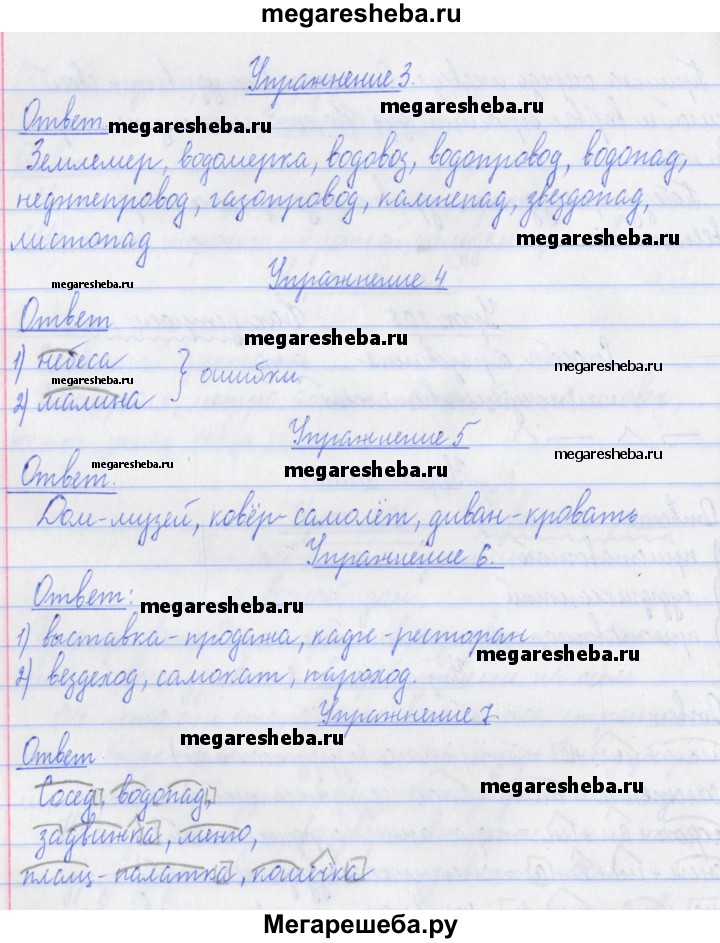 megaresheba.ru
Упражнение 3.
megaresheba.ru
Ответ
megaresheba.ru
Землемер, водомерка, водовоз, водопровод, водопад,
нефтепровод, газопровод, камнепад, звездопад,
листопад
megaresheba.ru
Упражнение 4
megaresheba.ru
Ответ
megaresheba.ru
1) небеса
} ошибки
megaresheba.ru
megaresheba.ru
2) малина
Упражнение 5
Ответ.
megaresheba.ru
megaresheba.ru
Дом-музей, ковёр-самолёт, диван-кровать
Упражнение 6.
Ответ:
megaresheba.ru
1) выставка-продажа, кафе-ресторан
megaresheba.ru
2) вездеход, самокат, пароход.
Упражнение 7
Ответ.
megaresheba.ru
Сосед, водопад,
megaresheba.ru
задвижка, меню,
плащ-палатка, кошечка
Мегарешеба.ру